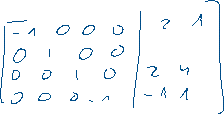 -1 0 0 0 | 2 1
0 1 0 0 |
0 0 1 0 | 2 4
0 0 0 -1 | -1 1